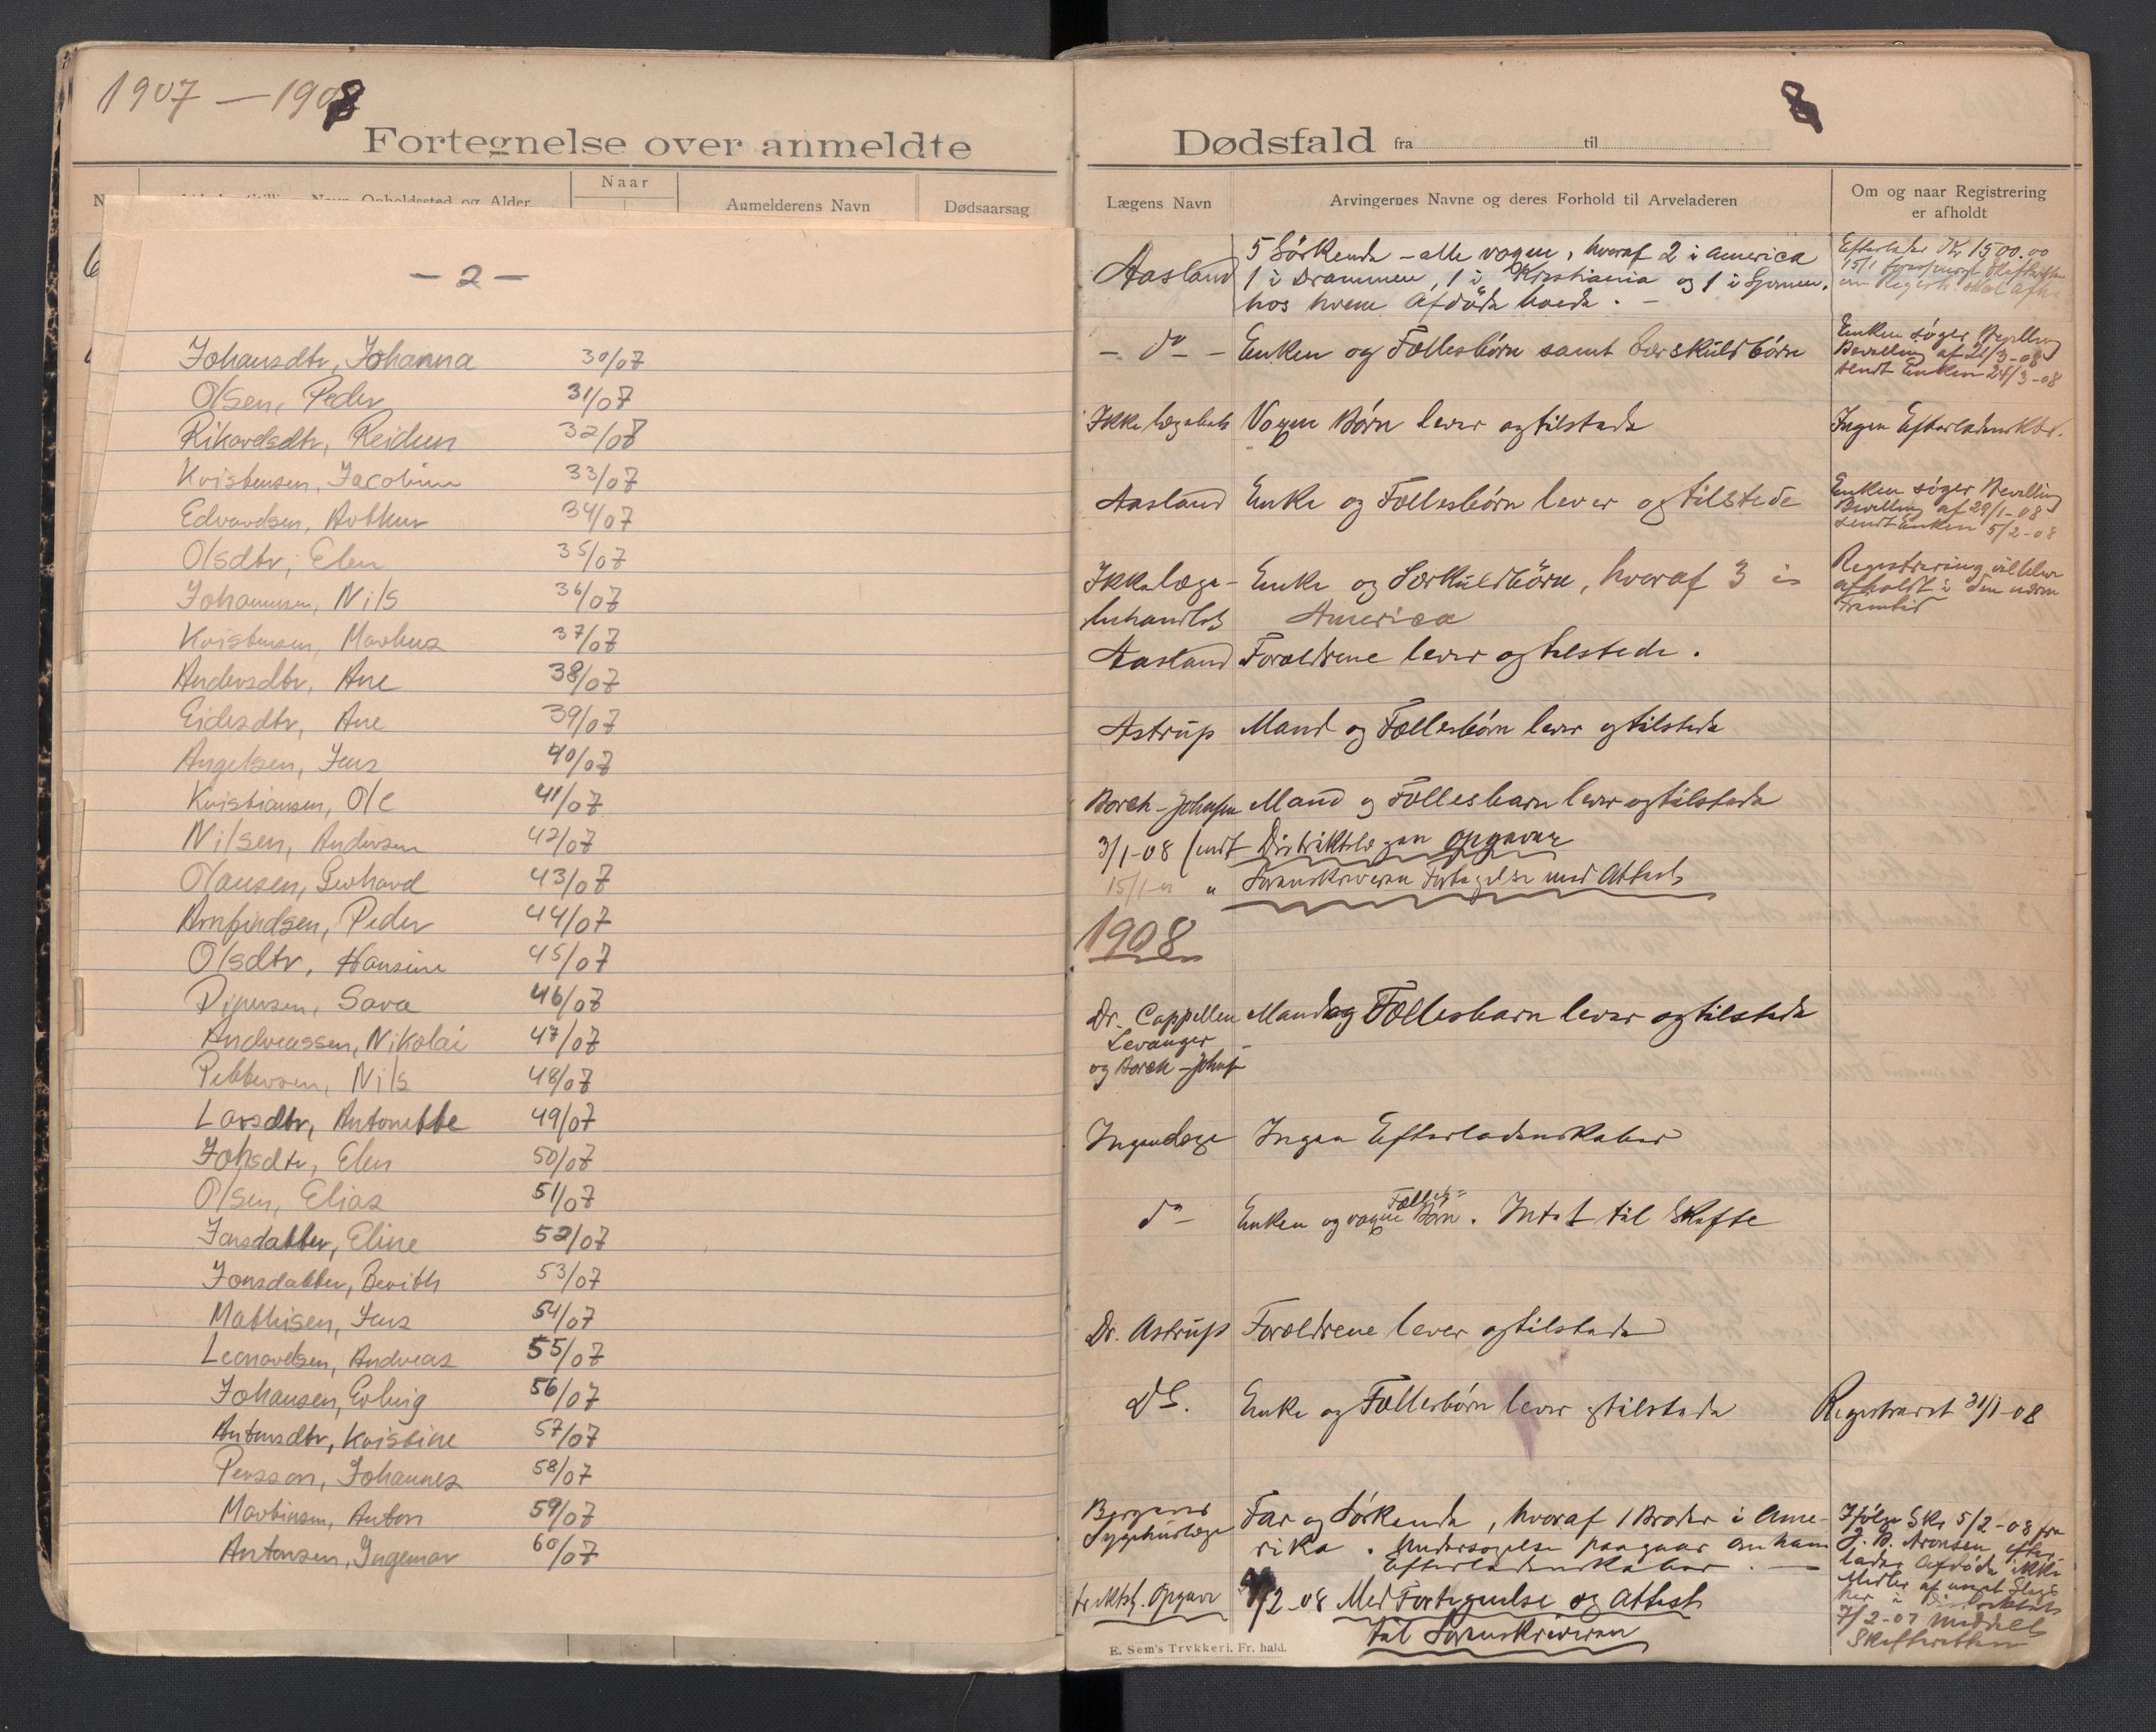 1907 – 1908
Fortegnelse over anmeldte
Naar
Navn, Opholdssted og Alder
Anmelderens Navn
Dødsaarsag
– 2 –
Johansdtr, Johanna 30/07
Olsen, Peder 31/07
Rikardsdtr, Reidun 32/07
Kristensen, Jacobine 33/07
Edvardsen, Arthur 34/07
Olsdtr, Elen 35/07
Johannsen, Nils 36/07
Kristensen, Markus 37/07
Andersdtr, Ane 38/07
Eidesdtr, Ane 39/07
Angelsen, Jens 40/07
Kristiansen, Ole 41/07
Nilsen, Andersen 42/07
Olausen, Gerhard 43/07
Arnfindsen, Peder 44/07
Olsdtr, Hansine 45/07
Sara 46/07
Andreassen, Nikolai 47/07
Pettersen, Nils 48/07
Larsdtr, Antonette 49/07
Johsdtr, Elen 50/07
Olsen, Elias 51/07
Jonsdatter, Eline 52/07
Jonsdatter, Berith 53/07
Mathisen, Jens 54/07
Leonardsen, Andreas 55/07
Johansen, Erling 56/07
Antonsdtr, Kristine 57/07
Persson, Johannes 58/07
Martinsen, Anton 59/07
Antonsen, Ingemar 60/07
8
Dødsfald fra til
Lægens Navn
Arvingernes Navne og deres Forhold til Arveladeren
Om og naar Registrering
er afholdt
Aasland
5 Sörkende – alle vogne, hvoraf 2 i America
1 i Drammen, 1 i Kristiania og 1 i
hos hvem Afdöde boede. –
Efterlader Kr 1500.00
– do – Enken og Fællesbörn samt særskuldbörn
Enken søger Bevilling
Bevilling af 21/3-08
sendt Enken 24/3-08
Ikke Vogne Börn lever og tilstede
Ingen
Aasland Enke og Fællesbörn lever og tilstede
Enken søger Bevilling
Bevilling af 29/1-08
sendt Enken 5/2-08
Ikke læge-
behandlet
Enke og Særkuldbörn, hvoraf 3 i
America
Registrering vil blive
afholdt i den nærm
Fremtid
Aasland Forældrene lever og tilstede.
Astrup Mand og Fællesbörn lever og tilstede
Borch-Johnsen Mand og Fællesbarn lever og tilstede
3/1-08 sendt Distriktslægen Opgaver
15/1 " Sorenskriveren Fortegnelse med Attest
1908
Dr. Cappellen
Levanger
og Borch-Johns
Mand og Fællesbarn lever og tilstede
Ingen læge Ingen Efterladenskaber
do Enken og vogne Fælles- Börn. Intet til Skifte
Dr. Astrup Forældrene lever og tilstede
do. Enke og Fællesbörn lever og tilstede
Registreret 31/1-08
Bergens
Sygehuslæge
Far og Sörkende, hvoraf 1 Broder i Ame-
rika. Undersøgelse paagaar om ham
Efterladenskaber. –
Ifölge Skr 5/2-08 fra
J. B. Aronsen efter-
lader Afdöde ikke
Midler af noget Slags
7/2-07 meddelt
Skifteretten
Opgave
/2-08 Med Fortegnelse og Attest
til Sorenskriveren
E. Sem's Trykkeri, Fr.hald.